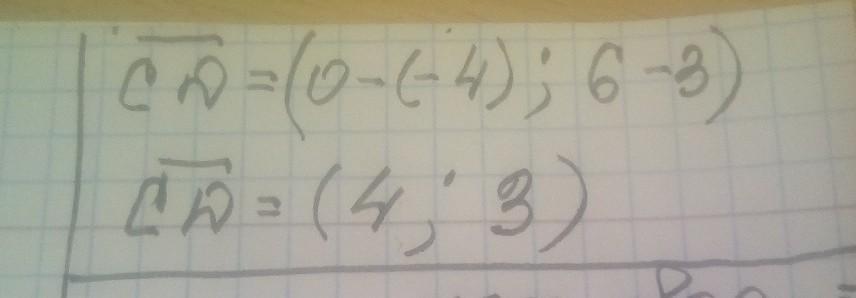 CD = (0 - (-4); 6 - 3)
CD = (4; 3)